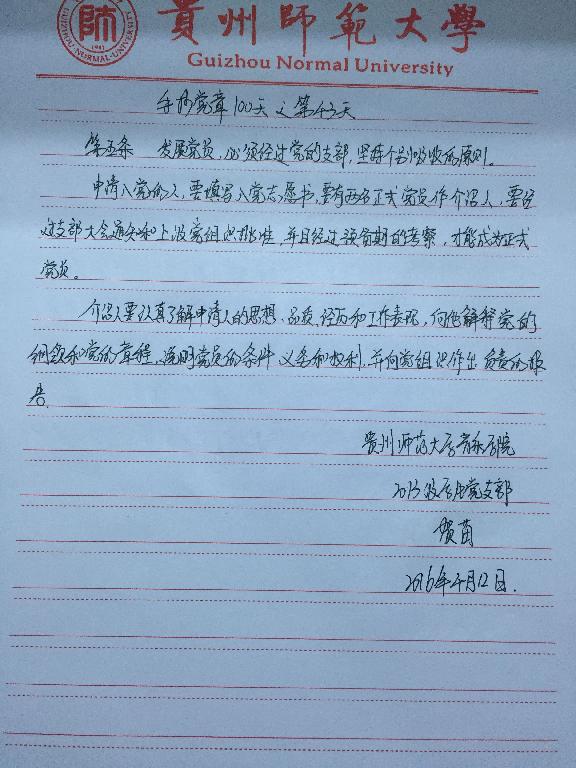 貴州師範大學
師
GUIZHOU NORMAL UNIVERSITY
1941
Guizhou Normal University
手抄党章100天之第43天
第五条 发展党员，必须经过党的支部，坚持个别吸收的原则。
申请入党的人，要填写入党志愿书，要有两名正式党员作介绍人，要经
过支部大会通过和上级党组织批准，并且经过预备期的考察，才能成为正式
党员。
介绍人要认真了解申请人的思想、品质、经历和工作表现，向他解释党的
纲领和党的章程，说明党员的条件、义务和权利，并向党组织作出负责的报
告。
贵州师范大学音乐学院
2013级学生党支部
贺苗
2016年4月12日.